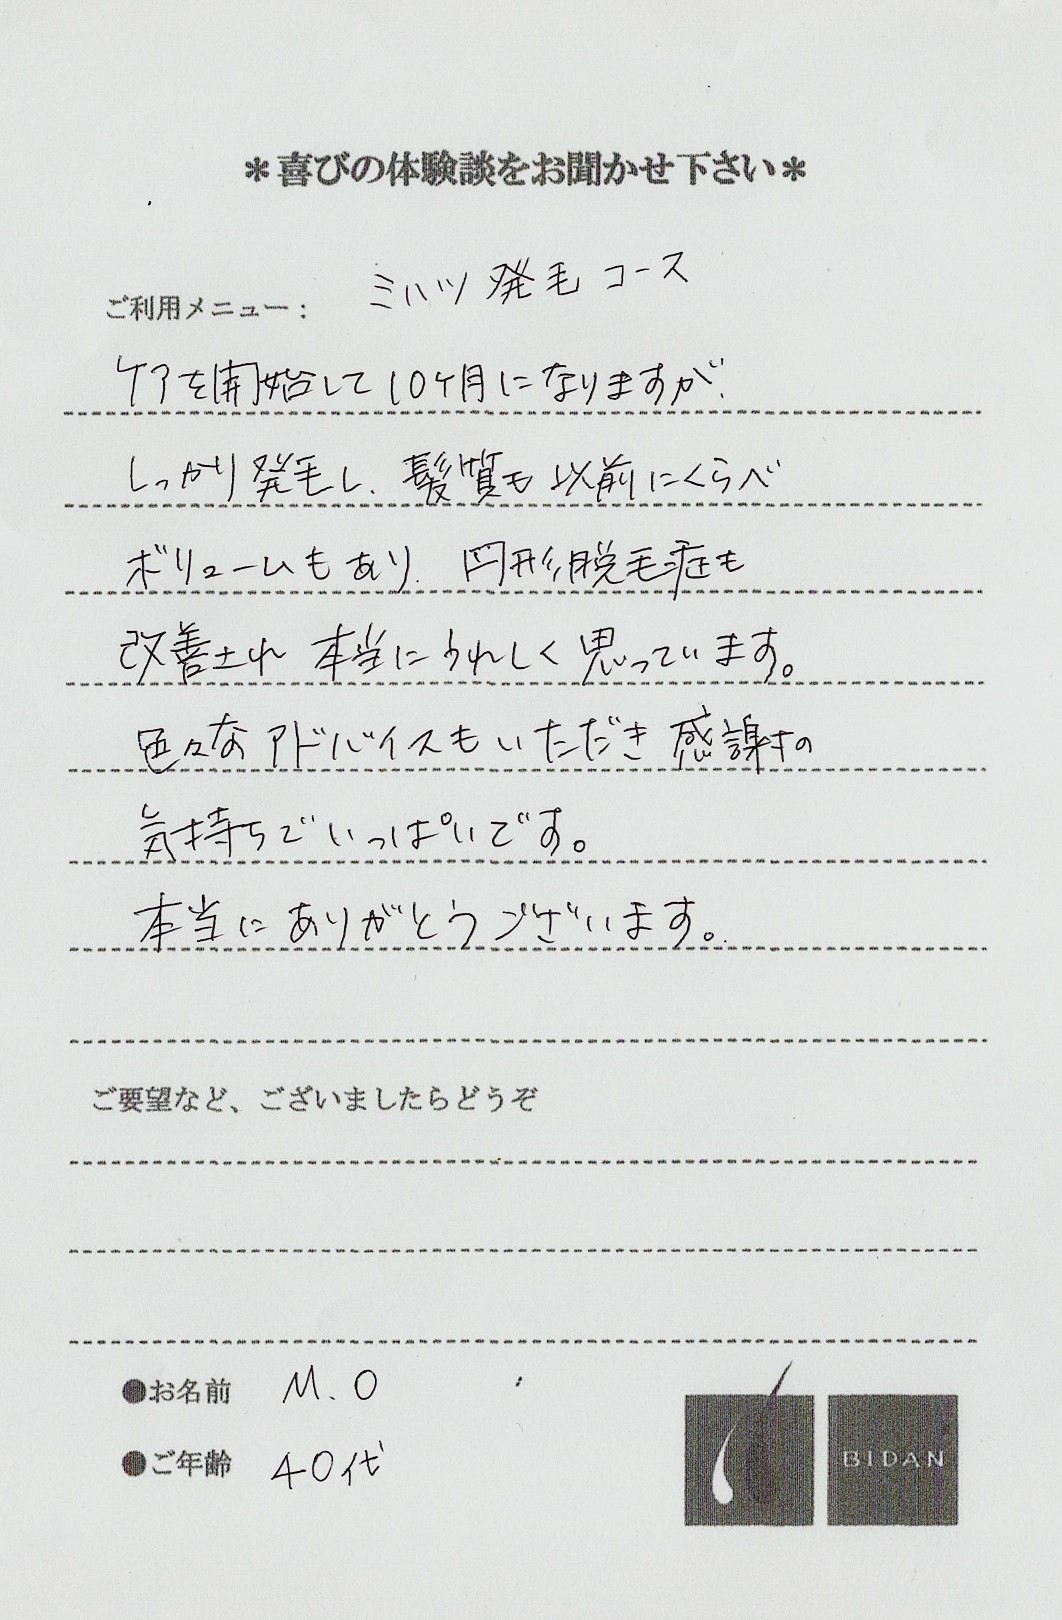 ＊喜びの体験談をお聞かせ下さい＊
ご利用メニュー： ミハツ発毛コース
ケアを開始して10ケ月になりますが、
しっかり発毛し、髪質も以前にくらべ
ボリュームもあり、円形脱毛症も
改善され 本当にうれしく思っています。
色々なアドバイスもいただき感謝の
気持ちでいっぱいです。
本当にありがとうございます。
ご要望など、ございましたらどうぞ
●お名前 M.O
●ご年齢 40代
BIDAN